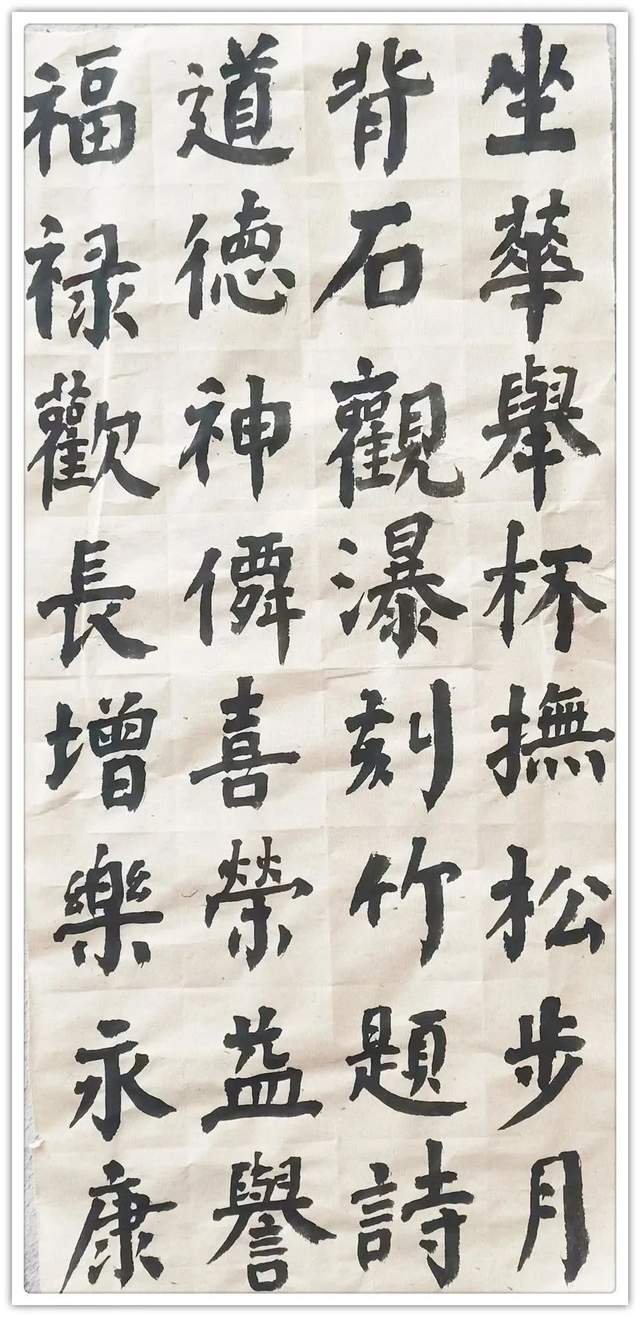 坐華舉杯撫松步月
背石觀瀑刻竹題詩
道德神僊喜榮益譽
福禄歡長增樂永康